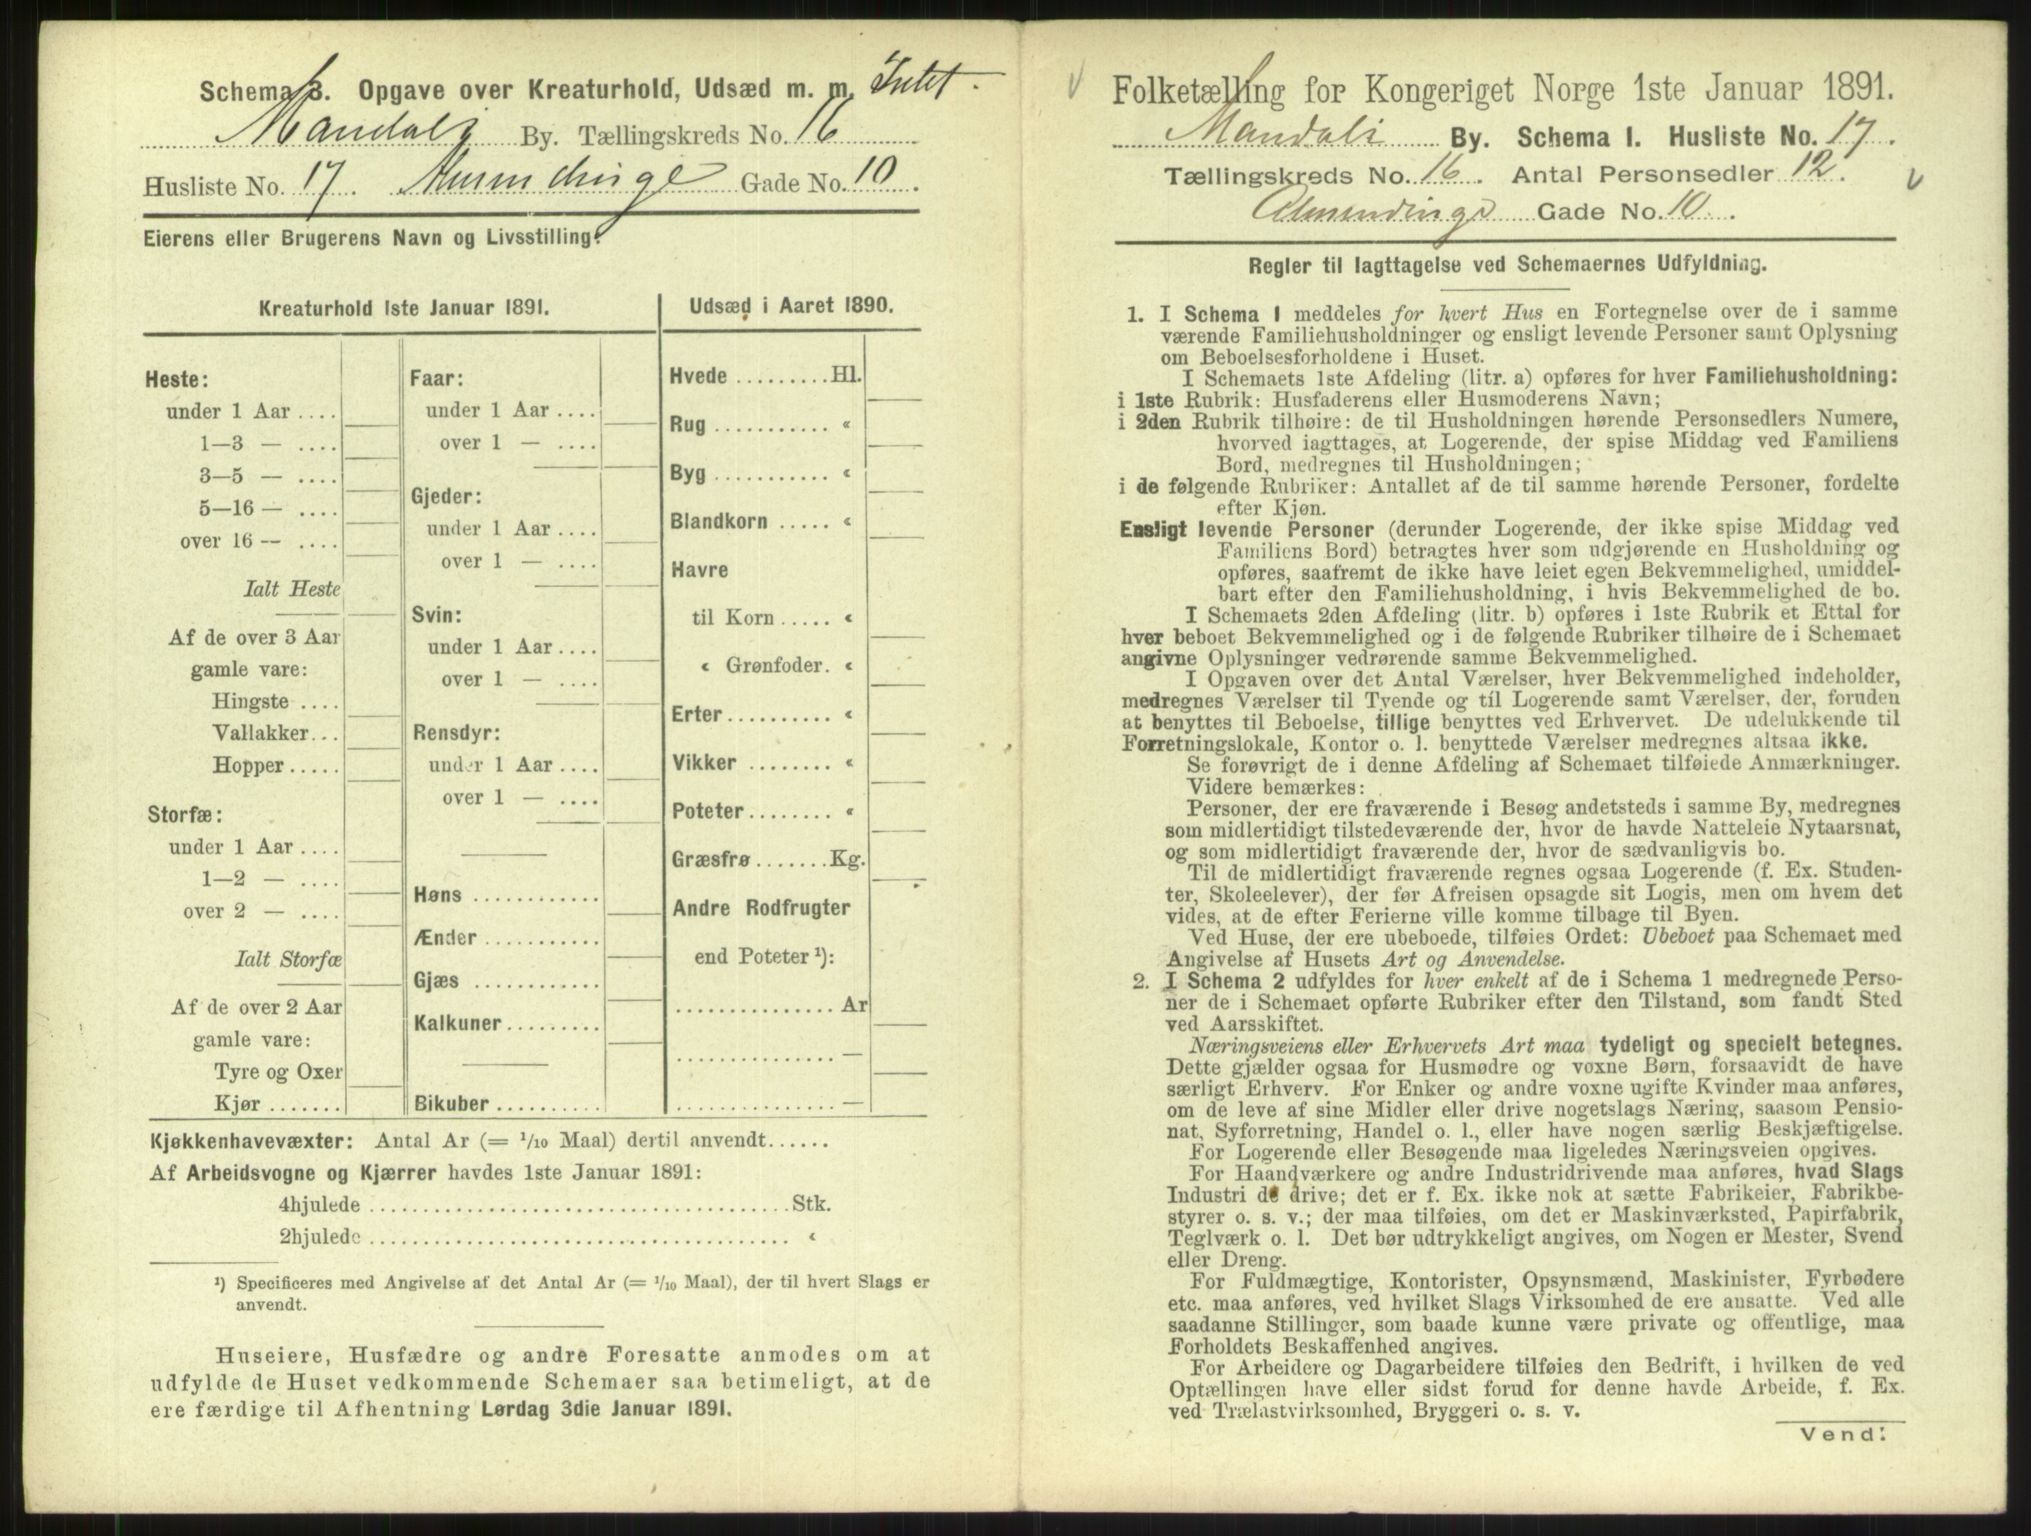 Schema 3. Opgave over Kreaturhold, Udsæd m. m. Intet.
Mandals By. Tællingskreds No. 16
Husliste No. 17. Gade No. 10.
Eierens eller Brugerens Navn og Livsstilling:
Kreaturhold 1ste Januar 1891.
Heste:
under 1 Aar ....
1—3 — ....
3—5 — ....
5—16 — ....
over 16 — ....
Ialt Heste
Af de over 3 Aar
gamle vare:
Hingste ....
Vallakker...
Hopper.....
Storfæ:
under 1 Aar ....
1—2 — ....
over 2 — ....
Ialt Storfæ
Af de over 2 Aar
gamle vare:
Tyre og Oxer
Kjør .......
Faar:
under 1 Aar ....
over 1 — ....
Gjeder:
under 1 Aar ....
over 1 — ....
Svin:
under 1 Aar ....
over 1 — ....
Rensdyr:
under 1 Aar ....
over 1 — ....
Høns ............
Ænder ...........
Gjæs ............
Kalkuner.........
Bikuber ..........
Udsæd i Aaret 1890.
Hvede .........Hl.
Rug ........... «
Byg ........... «
Blandkorn ..... «
Havre
til Korn ..... «
« Grønfoder. «
Erter.......... «
Vikker ........ «
Poteter........ «
Græsfrø .......Kg.
Andre Rodfrugter
end Poteter ¹):
...............Ar
...............—
...............—
Kjøkkenhavevæxter: Antal Ar (= 1/10 Maal) dertil anvendt......
Af Arbeidsvogne og Kjærrer havdes 1ste Januar 1891:
4hjulede ......................................Stk.
2hjulede ...................................... «
¹) Specificeres med Angivelse af det Antal Ar (= 1/10 Maal), der til hvert Slags er
anvendt.
Huseiere, Husfædre og andre Foresatte anmodes om at
udfylde de Huset vedkommende Schemaer saa betimeligt, at de
ere færdige til Afhentning Lørdag 3die Januar 1891.
Folketælling for Kongeriget Norge 1ste Januar 1891.
Mandals By. Schema I. Husliste No. 17.
Tællingskreds No. 16. Antal Personsedler 12.
Almendinge Gade No. 10.
Regler til Iagttagelse ved Schemaernes Udfyldning.
1. I Schema I meddeles for hvert Hus en Fortegnelse over de i samme
værende Familiehusholdninger og ensligt levende Personer samt Oplysning
om Beboelsesforholdene i Huset.
I Schemaets 1ste Afdeling (litr. a) opføres for hver Familiehusholdning:
i 1ste Rubrik: Husfaderens eller Husmoderens Navn;
i 2den Rubrik tilhøire: de til Husholdningen hørende Personsedlers Numere,
hvorved iagttages, at Logerende, der spise Middag ved Familiens
Bord, medregnes til Husholdningen;
i de følgende Rubriker: Antallet af de til samme hørende Personer, fordelte
efter Kjøn.
Ensligt levende Personer (derunder Logerende, der ikke spise Middag ved
Familiens Bord) betragtes hver som udgjørende en Husholdning og
opføres, saafremt de ikke have leiet egen Bekvemmelighed, umiddel-
bart efter den Familiehusholdning, i hvis Bekvemmelighed de bo.
I Schemaets 2den Afdeling (litr. b) opføres i 1ste Rubrik et Ettal for
hver beboet Bekvemmelighed og i de følgende Rubriker tilhøire de i Schemaet
angivne Oplysninger vedrørende samme Bekvemmelighed.
I Opgaven over det Antal Værelser, hver Bekvemmelighed indeholder,
medregnes Værelser til Tyende og til Logerende samt Værelser, der, foruden
at benyttes til Beboelse, tillige benyttes ved Erhvervet. De udelukkende til
Forretningslokale, Kontor o. l. benyttede Værelser medregnes altsaa ikke.
Se forøvrigt de i denne Afdeling af Schemaet tilføiede Anmærkninger.
Videre bemærkes:
Personer, der ere fraværende i Besøg andetsteds i samme By, medregnes
som midlertidigt tilstedeværende der, hvor de havde Natteleie Nytaarsnat,
og som midlertidigt fraværende der, hvor de sædvanligvis bo.
Til de midlertidigt fraværende regnes ogsaa Logerende (f. Ex. Studen-
ter, Skoleelever), der før Afreisen opsagde sit Logis, men om hvem det
vides, at de efter Ferierne ville komme tilbage til Byen.
Ved Huse, der ere ubeboede, tilføies Ordet: Ubeboet paa Schemaet med
Angivelse af Husets Art og Anvendelse.
2. I Schema 2 udfyldes for hver enkelt af de i Schema 1 medregnede Perso-
ner de i Schemaet opførte Rubriker efter den Tilstand, som fandt Sted
ved Aarsskiftet.
Næringsveiens eller Erhvervets Art maa tydeligt og specielt betegnes.
Dette gjælder ogsaa for Husmødre og voxne Børn, forsaavidt de have
særligt Erhverv. For Enker og andre voxne ugifte Kvinder maa anføres,
om de leve af sine Midler eller drive nogetslags Næring, saasom Pensio-
nat, Syforretning, Handel o. l., eller have nogen særlig Beskjæftigelse.
For Logerende eller Besøgende maa ligeledes Næringsveien opgives.
For Haandværkere og andre Industridrivende maa anføres, hvad Slags
Industri de drive; det er f. Ex. ikke nok at sætte Fabrikeier, Fabrikbe-
styrer o. s. v.; der maa tilføies, om det er Maskinværksted, Papirfabrik,
Teglværk o. l. Det bør udtrykkeligt angives, om Nogen er Mester, Svend
eller Dreng.
For Fuldmægtige, Kontorister, Opsynsmænd, Maskinister, Fyrbødere
etc. maa anføres, ved hvilket Slags Virksomhed de ere ansatte. Ved alle
saadanne Stillinger, som baade kunne være private og offentlige, maa
Forholdets Beskaffenhed angives.
For Arbeidere og Dagarbeidere tilføies den Bedrift, i hvilken de ved
Optællingen have eller sidst forud for denne havde Arbeide, f. Ex.
ved Trælastvirksomhed, Bryggeri o. s. v.
Vend!